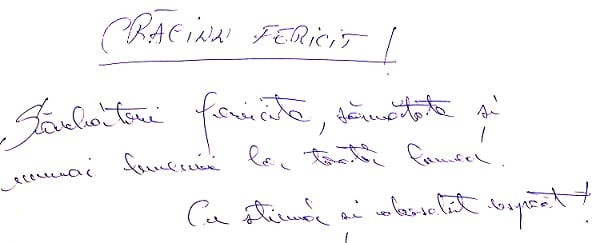 CRĂCIUN FERICIT!
Sărbători fericite, sănătate și
numai bucurii la toată lumea.
Cu stimă și deosebit respect!